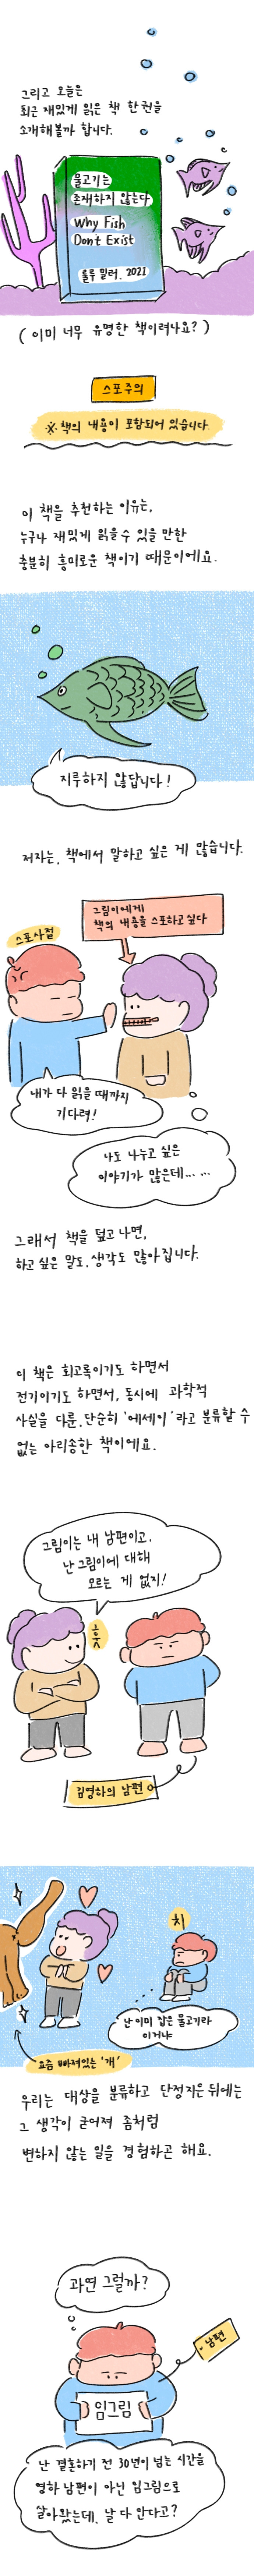 그리고 오늘은
최근 재밌게 읽은 책 한권을
소개해볼까 합니다.
물고기는
존재하지 않는다
Why Fish
Don't Exist
룰루 밀러, 2021
( 이미 너무 유명한 책이려나요? )
스포주의
※ 책의 내용이 포함되어 있습니다.
이 책을 추천하는 이유는,
누구나 재밌게 읽을 수 있을 만한
충분히 흥미로운 책이기 때문이에요.
지루하지 않답니다!
저자는, 책에서 말하고 싶은 게 많습니다.
그림이에게
책의 내용을 스포하고 싶다
스포사절
내가 다 읽을 때까지
기다려!
나도 나누고 싶은
이야기가 많은데... ...
그래서 책을 덮고 나면,
하고 싶은 말도, 생각도 많아집니다.
이 책은 회고록이기도 하면서
전기이기도 하면서, 동시에 과학적
사실을 다룬, 단순히 '에세이'라고 분류할 수
없는 아리송한 책이에요.
그림이는 내 남편이고,
난 그림이에 대해
모르는 게 없지!
훗
김영하의 남편
치
난 이미 잡은 물고기라
이거냐
요즘 빠져있는 '개'
우리는 대상을 분류하고 단정지은 뒤에는
그 생각이 굳어져 좀처럼
변하지 않는 일을 경험하곤 해요.
과연 그럴까?
남편
임그림
난 결혼하기 전 30년이 넘는 시간을
영하 남편이 아닌 임그림으로
살아왔는데, 날 다 안다고?